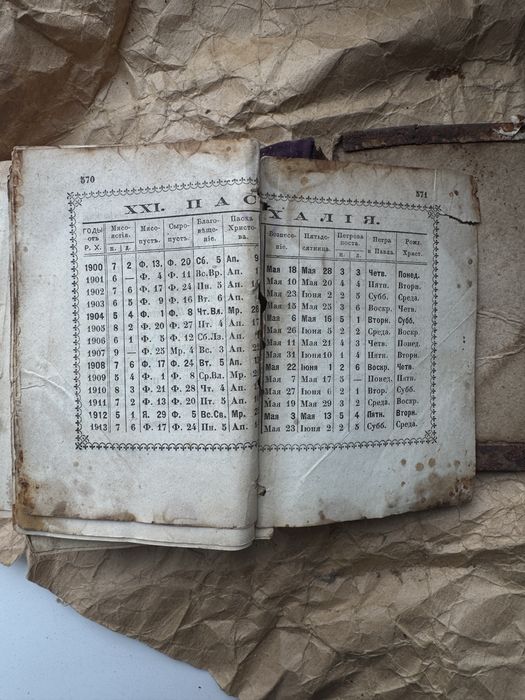 570 571
XXI. ПАСХАЛІЯ.
ГОДЫ Мясо- Мясо- Сыро- Благо- Пасха Вознесе- Пятьде- Петрова Петра Рожд.
отъ ястія. пустъ. пустъ. вѣще- Христо- ніе. сятница. поста. и Павла. Христ.
Р. Х. н. д. ніе. ва. н. д.
1900 7 2 Ф. 13. Ф. 20 Сб. 5 Ап. 9 Мая 18 Мая 28 3 3 Четв. Понед.
1901 6 — Ф. 4 Ф. 11 Вс.Вр. Ап. 1 Мая 10 Мая 20 4 4 Пятн. Вторн.
1902 7 6 Ф. 17 Ф. 24 Пн. 5 Ап. Мая 23 Іюня 2 2 5 Субб. Среда.
1903 6 5 Ф. 9 Ф. 16 Вт. 6 Ап. Мая 15 Мая 25 3 6 Воскр. Четв.
1904 5 4 Ф. 1 Ф. 8 Чт.Вл. Мр. 28 Мая 6 Мая 16 5 1 Вторн. Субб.
1905 8 2 Ф. 20 Ф. 27 Пт. 4 Ап. 17 Мая 26 Іюня 5 2 2 Среда. Воскр.
1906 6 1 Ф. 5 Ф. 12 Сб.Лз. Ап. Мая 11 Мая 21 4 3 Четв. Понед.
1907 9 — Ф. 25 Мр. 4 Вс. 3 Ап. Мая 31 Іюня10 1 4 Пятн. Вторн.
1908 7 6 Ф. 17 Ф. 24 Вт. 5 Ап. Мая 22 Іюня 1 2 6 Воскр. Четв.
1909 5 4 Ф. 1 Ф. 8 Ср.Вл. Мр. Мая 7 Мая 17 5 — Понед. Пятн.
1910 8 3 Ф. 21 Ф. 28 Чт. 4 Ап. Мая 27 Іюня 6 2 1 Вторн. Субб.
1911 7 2 Ф. 13 Ф. 20 Пт. 5 Ап. Мая 19 Мая 29 3 2 Среда. Воскр.
1912 5 1 Я. 29 Ф. 5 Вс.Св. Мр. Мая 3 Мая 13 5 4 Пятн. Вторн.
1913 7 6 Ф. 17 Ф. 24 Пн. 5 Ап. Мая 23 Іюня 2 2 5 Субб. Среда.